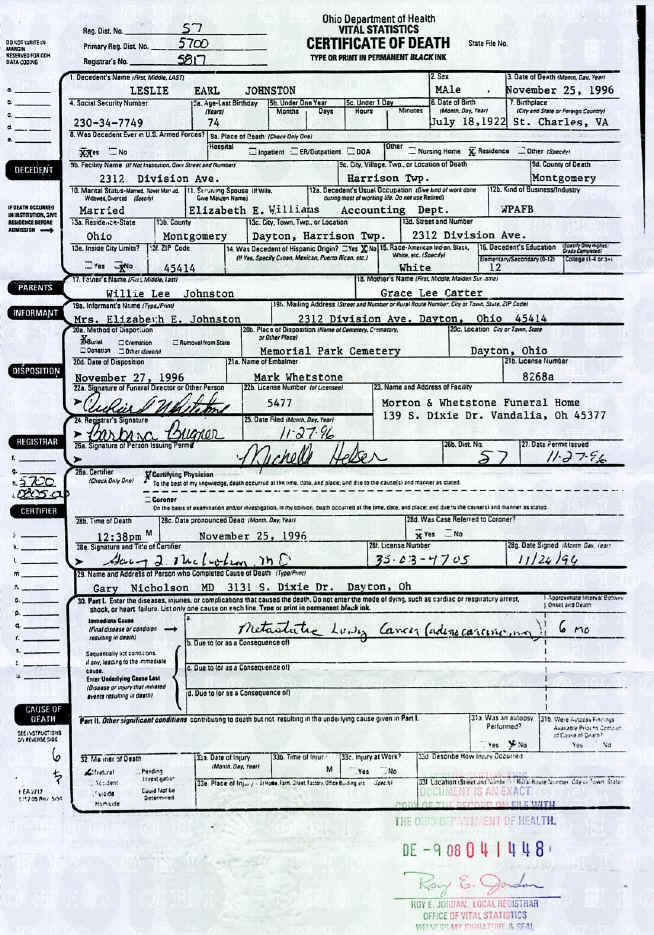 Ohio Department of Health
VITAL STATISTICS
CERTIFICATE OF DEATH
TYPE OR PRINT IN PERMANENT BLACK INK
Reg. Dist. No. 57
Primary Reg. Dist. No. 5700
Registrar's No. 5817
State File No.
DO NOT WRITE IN
MARGIN
RESERVED FOR ODH
DATA CODING
1. Decedent's Name (First, Middle, LAST)
LESLIE EARL JOHNSTON
2. Sex
MAle
3. Date of Death (Month, Day, Year)
November 25, 1996
4. Social Security Number
230-34-7749
5a. Age-Last Birthday (Years)
74
5b. Under One Year
Months Days
5c. Under 1 Day
Hours Minutes
6. Date of Birth (Month, Day, Year)
July 18,1922
7. Birthplace (City and State or Foreign Country)
St. Charles, VA
8. Was Decedent Ever in U.S. Armed Forces?
Yes No
9a. Place of Death (Check Only One)
Hospital Inpatient ER/Outpatient DOA
Other Nursing Home Residence Other (Specify)
DECEDENT
9b. Facility Name (If Not Institution, Give Street and Number)
2312 Division Ave.
9c. City, Village, Twp., or Location of Death
Harrison Twp.
9d. County of Death
Montgomery
IF DEATH OCCURRED
IN INSTITUTION, GIVE
RESIDENCE BEFORE
ADMISSION
10. Marital Status-Married, Never Married, Widowed, Divorced (Specify)
Married
11. Surviving Spouse (If Wife, Give Maiden Name)
Elizabeth E. Williams
12a. Decedent's Usual Occupation (Give kind of work done during most of working life. Do not use Retired)
Accounting Dept.
12b. Kind of Business/Industry
WPAFB
13a. Residence-State
Ohio
13b. County
Montgomery
13c. City, Town, Twp., or Location
Dayton, Harrison Twp.
13d. Street and Number
2312 Division Ave.
13e. Inside City Limits?
Yes No
13f. ZIP Code
45414
14. Was Decedent of Hispanic Origin? Yes No
(If Yes, Specify Cuban, Mexican, Puerto Rican, etc.)
15. Race-American Indian, Black, White, etc. (Specify)
White
16. Decedent's Education (Specify Only Highest Grade Completed)
Elementary/Secondary (0-12) College (1-4 or 5+)
12
PARENTS
17. Father's Name (First, Middle, Last)
Willie Lee Johnston
18. Mother's Name (First, Middle, Maiden Surname)
Grace Lee Carter
INFORMANT
19a. Informant's Name (Type/Print)
Mrs. Elizabeth E. Johnston
19b. Mailing Address (Street and Number or Rural Route Number, City or Town, State, ZIP Code)
2312 Division Ave. Dayton, Ohio 45414
DISPOSITION
20a. Method of Disposition
Burial Cremation Removal from State
Donation Other (Specify)
20b. Place of Disposition (Name of Cemetery, Crematory, or Other Place)
Memorial Park Cemetery
20c. Location City or Town, State
Dayton, Ohio
20d. Date of Disposition
November 27, 1996
21a. Name of Embalmer
Mark Whetstone
21b. License Number
8268a
22a. Signature of Funeral Director or Other Person
22b. License Number (of Licensee)
5477
23. Name and Address of Facility
Morton & Whetstone Funeral Home
139 S. Dixie Dr. Vandalia, Oh 45377
REGISTRAR
24. Registrar's Signature
Barbara Bugner
25. Date Filed (Month, Day, Year)
11-27-96
26a. Signature of Person Issuing Permit
26b. Dist. No.
57
27. Date Permit Issued
11-27-96
5700
CERTIFIER
28a. Certifier
(Check Only One)
Certifying Physician
To the best of my knowledge, death occurred at the time, date, and place; and due to the cause(s) and manner as stated.
Coroner
On the basis of examination and/or investigation, in my opinion, death occurred at the time, date, and place; and due to the cause(s) and manner as stated.
28b. Time of Death
12:38pm M
28c. Date pronounced Dead (Month, Day, Year)
November 25, 1996
28d. Was Case Referred to Coroner?
Yes No
28e. Signature and Title of Certifier
28f. License Number
35-03-4705
28g. Date Signed (Month, Day, Year)
11/26/96
29. Name and Address of Person who Completed Cause of Death (Type/Print)
Gary Nicholson MD 3131 S. Dixie Dr. Dayton, Oh
30. Part I. Enter the diseases, injuries, or complications that caused the death. Do not enter the mode of dying, such as cardiac or respiratory arrest,
shock, or heart failure. List only one cause on each line. Type or print in permanent black ink.
Approximate Interval Between
Onset and Death
Immediate Cause
(Final disease or condition
resulting in death)
a. Metastatic Lung Cancer (adenocarcinoma) 6 mo
b. Due to (or as a Consequence of)
Sequentially list conditions,
if any, leading to the immediate
cause.
c. Due to (or as a Consequence of)
Enter Underlying Cause Last
(Disease or injury that initiated
events resulting in death)
d. Due to (or as a Consequence of)
CAUSE OF
DEATH
SEE INSTRUCTIONS
ON REVERSE SIDE
Part II. Other significant conditions contributing to death but not resulting in the underlying cause given in Part I.
31a. Was an autopsy
Performed?
Yes No
31b. Were Autopsy Findings
Available Prior to Completion
of Cause of Death?
Yes No
32. Manner of Death
Natural Pending Investigation
Accident
Suicide Could Not be Determined
Homicide
33a. Date of Injury
(Month, Day, Year)
33b. Time of Injury
M
33c. Injury at Work?
Yes No
33d. Describe How Injury Occurred
33e. Place of Injury
DOCUMENT IS AN EXACT
COPY OF THE RECORD ON FILE WITH
THE OHIO DEPARTMENT OF HEALTH.
DE -9 08 041448
Roy E. Jordan
ROY E. JORDAN, LOCAL REGISTRAR
OFFICE OF VITAL STATISTICS
WITNESS MY SIGNATURE & SEAL